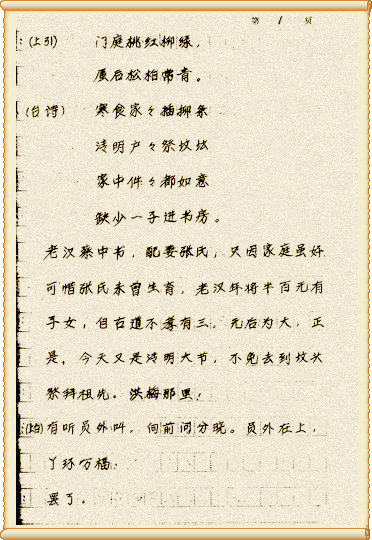 第 1 页
(上引) 门庭桃红柳绿，
屋后松柏常青。
(白诗) 寒食家々插柳条
清明户々祭坟坛
家中件々都如意
缺少一子进书房。
老汉蔡中书，配妻张氏，只因家庭虽好
可惜张氏未曾生育，老汉年将半百元有
子女，但古道不孝有三，无后为大，正
是，今天又是清明大节，不免去到坟头
祭拜祖先。洪梅那里，
有听员外叫，向前问分晓。员外在上，
丫环万福．
罢了．